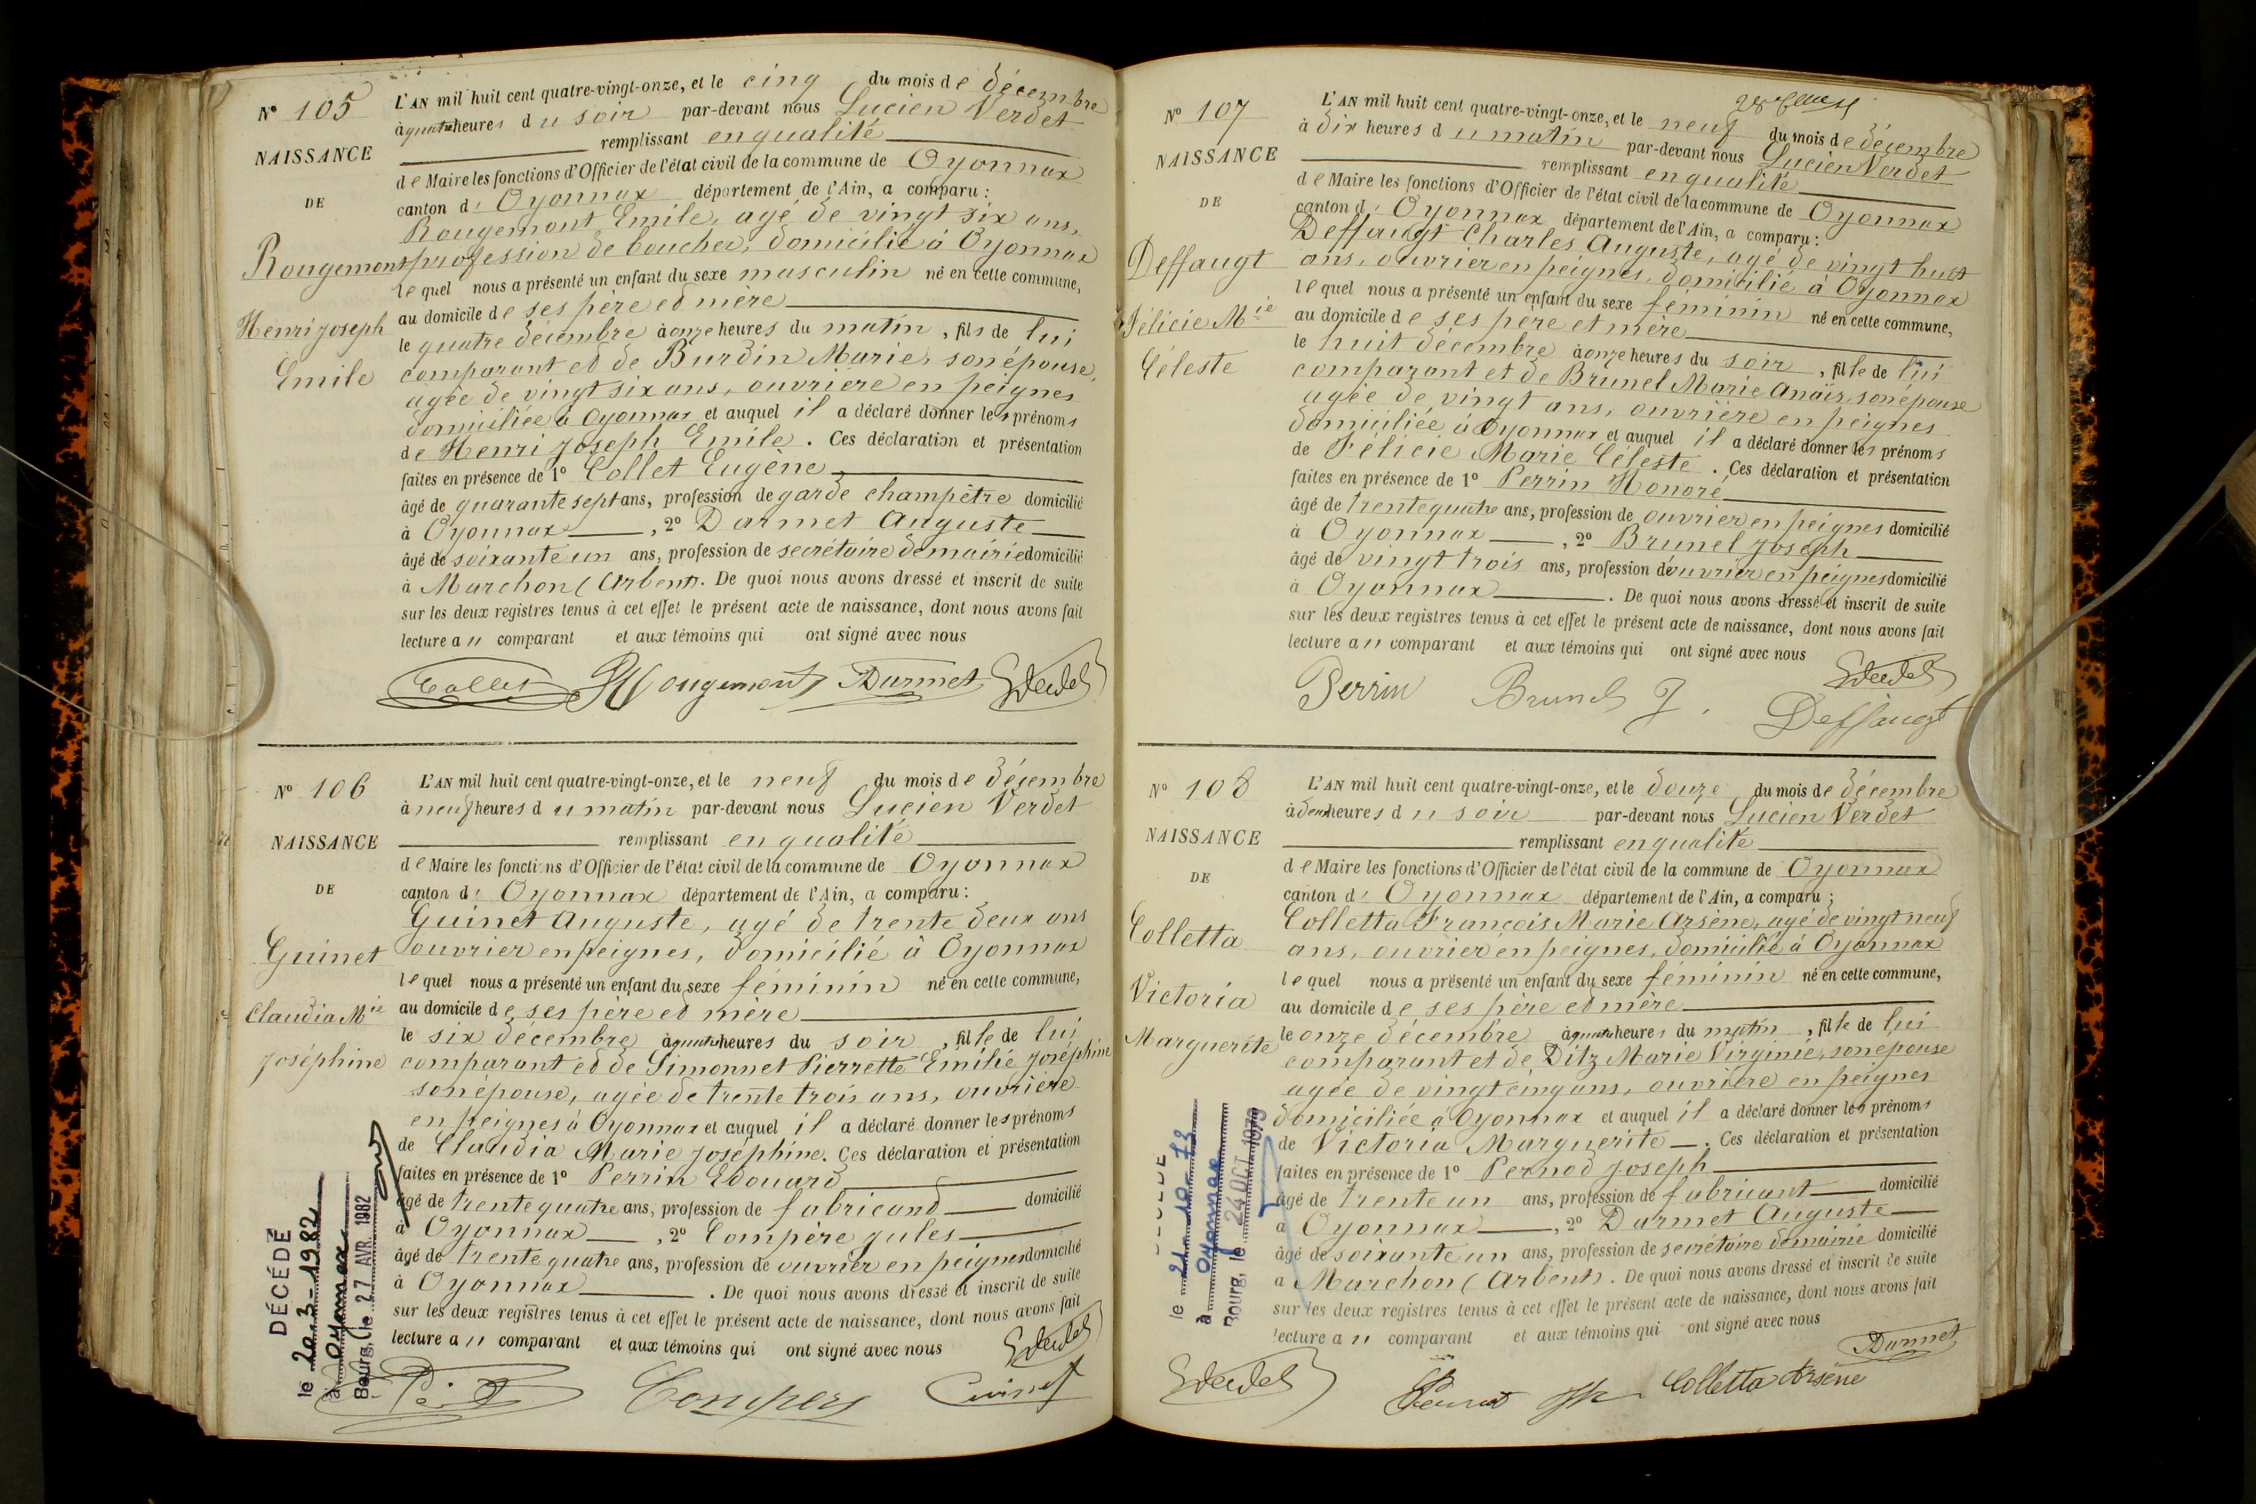 N° 105
NAISSANCE
DE
Rougemont
Henri Joseph
Emile
L'AN mil huit cent quatre-vingt-onze, et le cinq du mois de décembre
à quatre heures du soir par-devant nous Lucien Verdet
remplissant en qualité
de Maire les fonctions d'Officier de l'état civil de la commune de Oyonnax
canton d' Oyonnax département de l'Ain, a comparu :
Rougemont Emile, agé de vingt six ans,
profession de boucher, domicilié à Oyonnax
lequel nous a présenté un enfant du sexe masculin né en cette commune,
au domicile de ses père et mère
le quatre décembre à onze heures du matin, fils de lui
comparant et de Burdin Marie, son épouse,
agée de vingt six ans, ouvrière en peignes
domiciliée à Oyonnax et auquel il a déclaré donner les prénoms
de Henri Joseph Emile. Ces déclaration et présentation
faites en présence de 1° Collet Eugène
âgé de quarante sept ans, profession de garde champêtre domicilié
à Oyonnax, 2° Darmet Auguste
âgé de soixante un ans, profession de secrétaire de mairie domicilié
à Marchon (Arbent). De quoi nous avons dressé et inscrit de suite
sur les deux registres tenus à cet effet le présent acte de naissance, dont nous avons fait
lecture au comparant et aux témoins qui ont signé avec nous
Collet Rougemont Darmet LVerdet
N° 106
NAISSANCE
DE
Guinet
Claudia Mie
Joséphine
L'AN mil huit cent quatre-vingt-onze, et le neuf du mois de décembre
à neuf heures du matin par-devant nous Lucien Verdet
remplissant en qualité
de Maire les fonctions d'Officier de l'état civil de la commune de Oyonnax
canton d' Oyonnax département de l'Ain, a comparu :
Guinet Auguste, agé de trente deux ans
ouvrier en peignes, domicilié à Oyonnax
lequel nous a présenté un enfant du sexe féminin né en cette commune,
au domicile de ses père et mère
le six décembre à quatre heures du soir, fille de lui
comparant et de Simonnet Pierrette Emilie Joséphine
son épouse, agée de trente trois ans, ouvrière
en peignes à Oyonnax et auquel il a déclaré donner les prénoms
de Claudia Marie Joséphine. Ces déclaration et présentation
faites en présence de 1° Perrin Edouard
âgé de trente quatre ans, profession de fabricand domicilié
à Oyonnax, 2° Compère Jules
âgé de trente quatre ans, profession de ouvrier en peignes domicilié
à Oyonnax. De quoi nous avons dressé et inscrit de suite
sur les deux registres tenus à cet effet le présent acte de naissance, dont nous avons fait
lecture au comparant et aux témoins qui ont signé avec nous
LVerdet
Compère Guinet
DÉCÉDÉ
le 20-3-1982
à Oyonnax
Bourg, le 27 AVR. 1982
N° 107
NAISSANCE
DE
Deffaugt
Félicie Mie
Céleste
L'AN mil huit cent quatre-vingt-onze, et le neuf du mois de décembre
à dix heures du matin par-devant nous Lucien Verdet
remplissant en qualité
de Maire les fonctions d'Officier de l'état civil de la commune de Oyonnax
canton d' Oyonnax département de l'Ain, a comparu :
Deffaugt Charles Auguste, agé de vingt huit
ans, ouvrier en peignes, domicilié à Oyonnax
lequel nous a présenté un enfant du sexe féminin né en cette commune,
au domicile de ses père et mère
le huit décembre à onze heures du soir, fille de lui
comparant et de Brunel Marie Anaïs, son épouse
agée de vingt ans, ouvrière en peignes
domiciliée à Oyonnax et auquel il a déclaré donner les prénoms
de Félicie Marie Céleste. Ces déclaration et présentation
faites en présence de 1° Perrin Honoré
âgé de trente quatre ans, profession de ouvrier en peignes domicilié
à Oyonnax, 2° Brunel Joseph
âgé de vingt trois ans, profession d'ouvrier en peignes domicilié
à Oyonnax. De quoi nous avons dressé et inscrit de suite
sur les deux registres tenus à cet effet le présent acte de naissance, dont nous avons fait
lecture au comparant et aux témoins qui ont signé avec nous
LVerdet
Perrin Brunel J. Deffaugt
N° 108
NAISSANCE
DE
Colletta
Victoria
Marguerite
L'AN mil huit cent quatre-vingt-onze, et le douze du mois de décembre
à deux heures du soir par-devant nous Lucien Verdet
remplissant en qualité
de Maire les fonctions d'Officier de l'état civil de la commune de Oyonnax
canton d' Oyonnax département de l'Ain, a comparu ;
Colletta François Marie Arsène, agé de vingt neuf
ans, ouvrier en peignes, domicilié à Oyonnax
lequel nous a présenté un enfant du sexe féminin né en cette commune,
au domicile de ses père et mère
le onze décembre à quatre heures du matin, fille de lui
comparant et de Ditz Marie Virginie, son épouse
agée de vingt cinq ans, ouvrière en peignes
domiciliée à Oyonnax et auquel il a déclaré donner les prénoms
de Victoria Marguerite. Ces déclaration et présentation
faites en présence de 1° Pernod Joseph
âgé de trente un ans, profession de fabricant domicilié
à Oyonnax, 2° Darmet Auguste
âgé de soixante un ans, profession de secrétaire de mairie domicilié
à Marchon (Arbent). De quoi nous avons dressé et inscrit de suite
sur les deux registres tenus à cet effet le présent acte de naissance, dont nous avons fait
lecture au comparant et aux témoins qui ont signé avec nous
Darmet
LVerdet Pernod Colletta Arsène
DÉCÉDÉ
le 21-10-73
à Oyonnax
Bourg, le 24 OCT. 1973